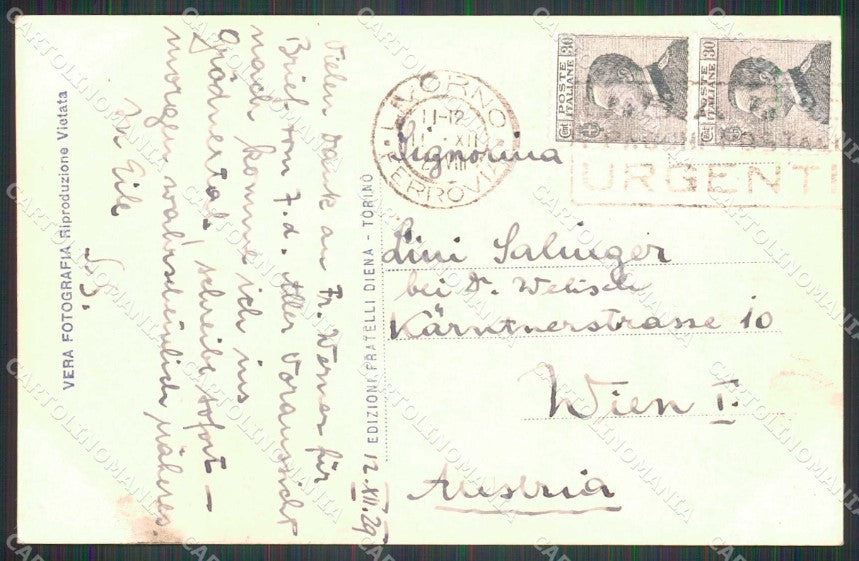 VERA FOTOGRAFIA Riproduzione Vietata
Vielen Dank an Fr. Werner für
Brief vom 7. d. Aller Voraussicht
nach komme ich ins
Grödnertal, schreibe sofort –
morgen wahrscheinlich näheres.
In Eile
EDIZIONI FRATELLI DIENA - TORINO
12.XII.29
LIVORNO
11-12
XII
FERROVIA
POSTE
ITALIANE
Cent 30
POSTE
ITALIANE
Cent 30
URGENTI
Signorina
Lini Salinger
bei Dr. Weltsch
Kärntnerstrasse 10
Wien I.
Austria
CARTOLINOMANIA